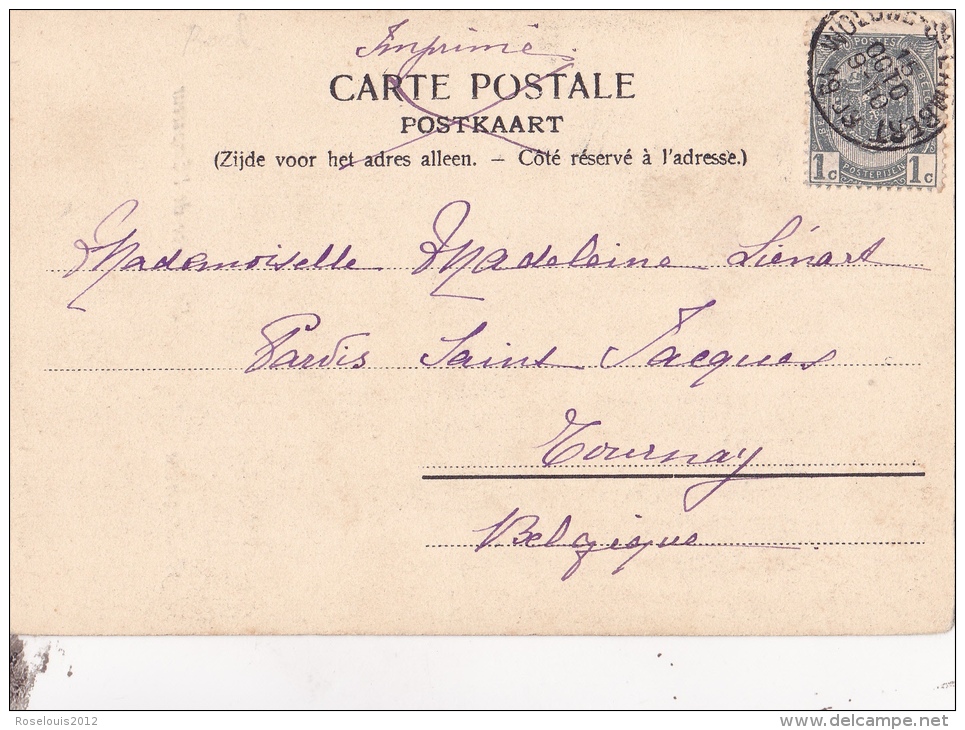 Imprimé
CARTE POSTALE
POSTKAART
(Zijde voor het adres alleen. — Côté réservé à l'adresse.)
POSTES
1c POSTERIJEN 1c
Mademoiselle Madeleine Liénart
Parvis Saint Jacques
Tournay
Belgique
Roselouis2012
www.delcampe.net